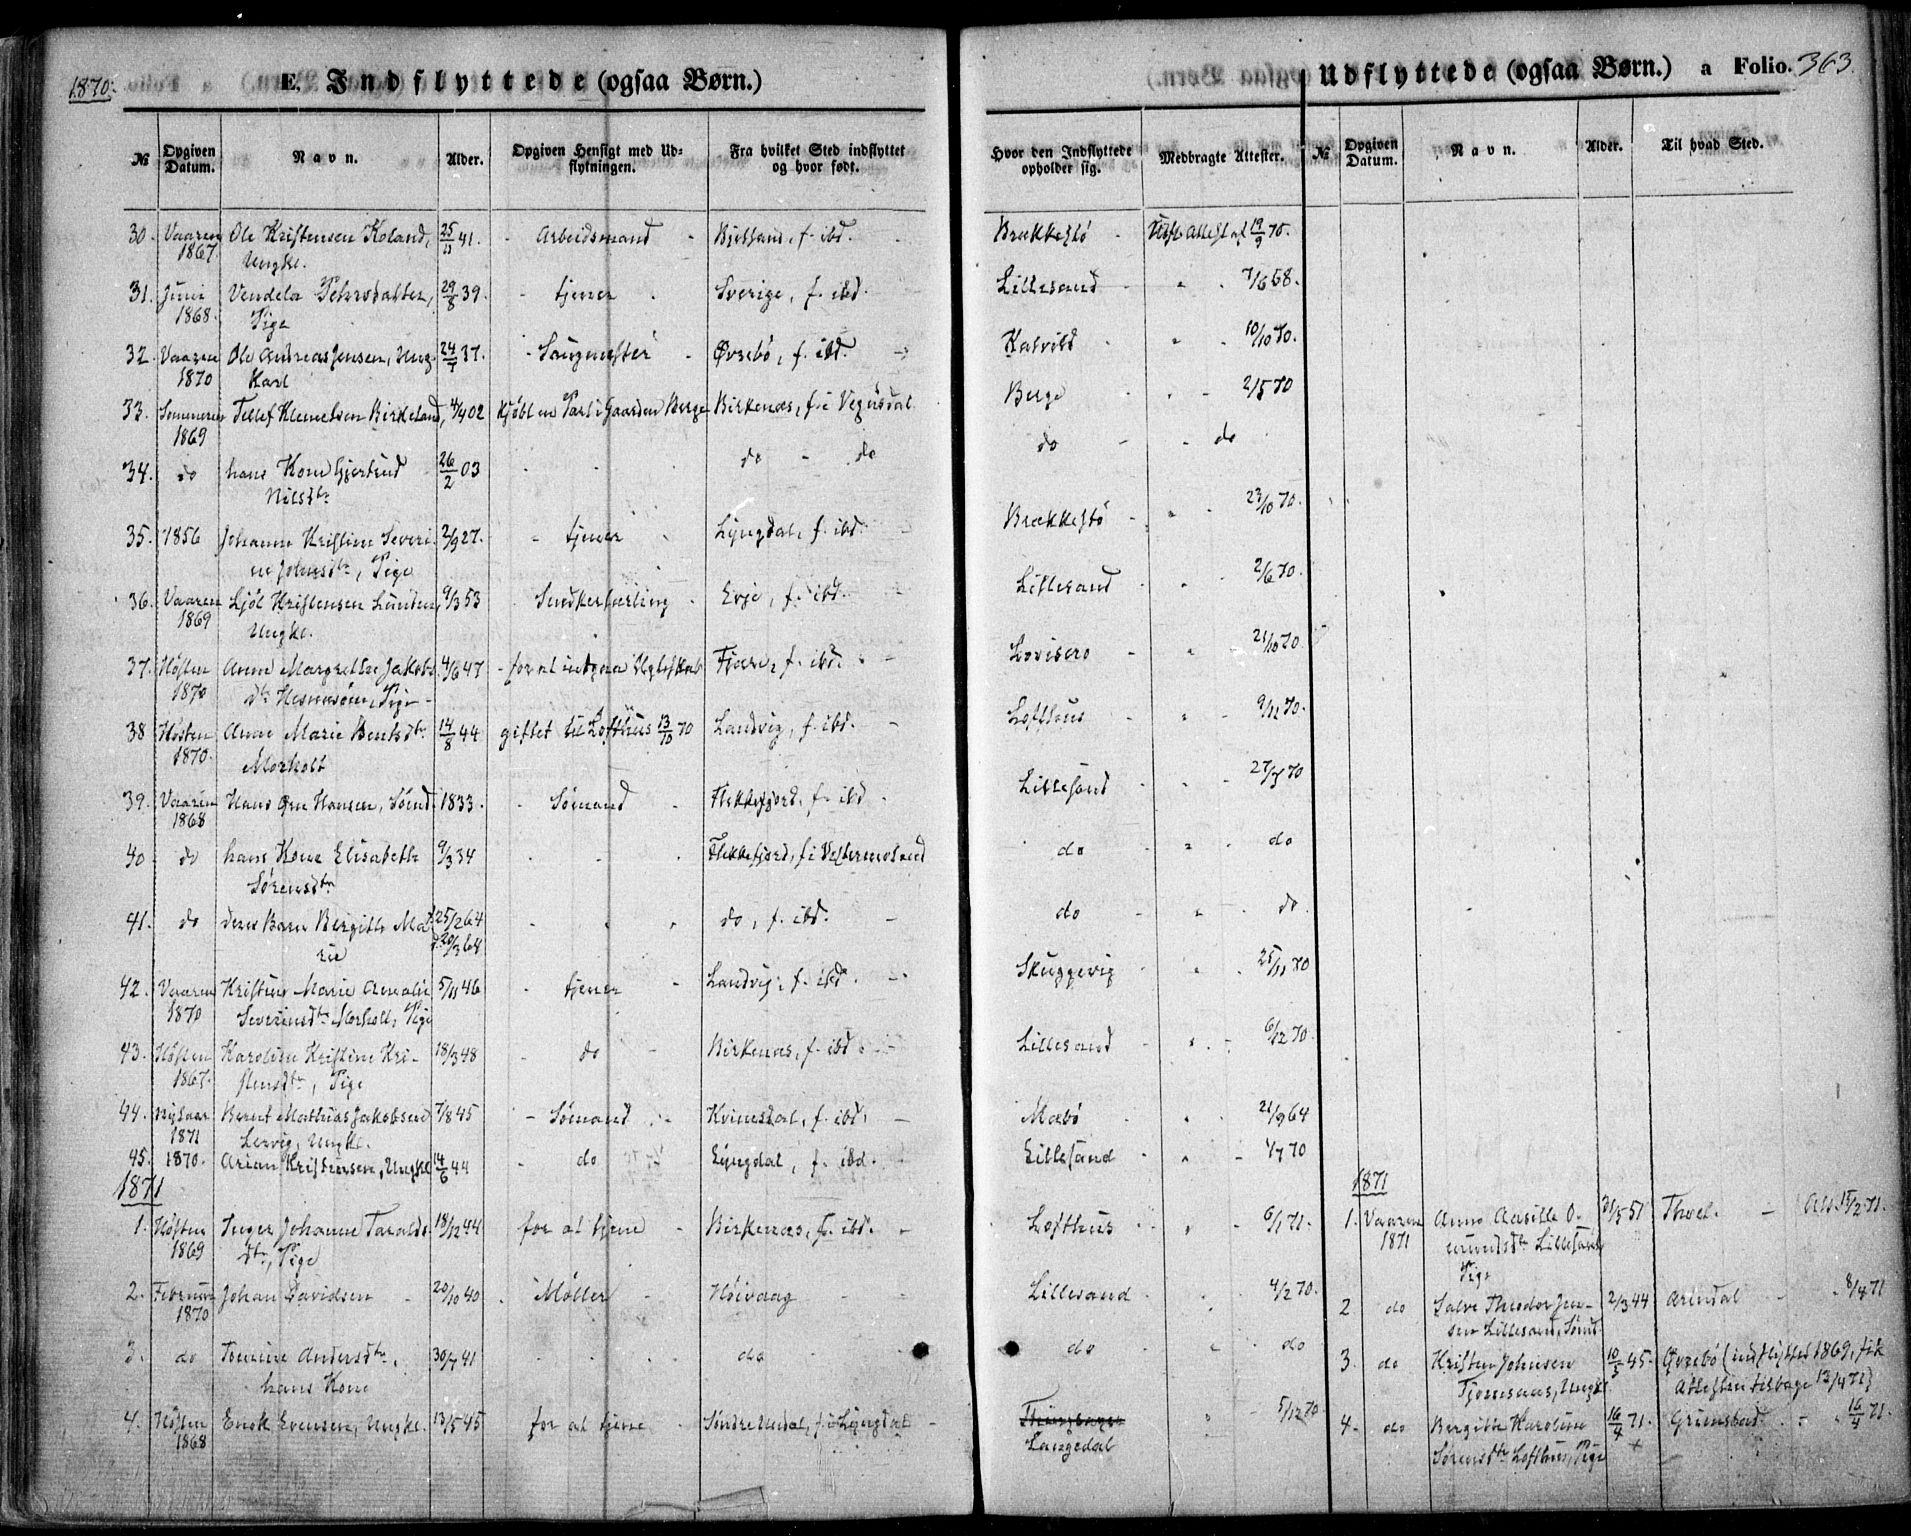 1870.
E. Indflyttede (ogsaa Børn.)
Udflyttede (ogsaa Børn.) a Folio. 363.
№ Opgiven Datum. Navn. Alder. Opgiven Hensigt med Udflytningen. Fra hvilket Sted indflyttet og hvor født. Hvor den Indflyttede opholder sig. Medbragte Attester. № Opgiven Datum. Navn. Alder. Til hvad Sted.
30. Vaaren Ole Kristensen Koland, 25/11 41. - Arbeidsmand - Bjelland, f. ibd. Brækkestø - Attest af 19/9 70.
1867. Ungkl.
31. Juni Vendela Pehrsdatter, 29/8 39. - tjener - Sverige, f. ibd. Lillesand " 7/6 68.
1868. Pige
32. Vaaren Ole Andreas Jensen, Ung- 24/7 37. - Saugmester - Øvrebø, f. ibd. Kalvild " 10/10 70.
1870 Karl
33. Sommeren Tellef Klemetsen Birkeland, 4/4 02 Kjøbt en Part i Gaarden Berge Birkenæs, f. i Vegusdal Berge - 2/5 70
1869
34. do hans Kone Gjertrud 26/2 03 - - do - do do - " do
Nilsdtr
35. 1856 Johanne Kristine Severi- 2/9 27. - tjener Lyngdal, f. ibd. Brækkestø - " 23/10 70.
ne Johnsdtr, Pige
36. Vaaren Ljøl Kristensen Lunden, 9/3 53 - Snedkerlærling - Evje, f. ibd. Lillesand - 2/6 70.
1869 Ungkl.
37. Høsten Anne Margrethe Jakobs- 4/6 47 - for at indgaa Ægteskab Fjære, f. ibd. - Lovisero - 21/10 70
1870 dtr Hesnesøen, Pige -
38 Høsten Anne Marie Bentsdtr 14/8 44 giftet til Lofthus 13/10 70 Landvig, f. ibd. - Lofthus " 9/11 70.
1870. Morholt
39. Vaaren Hans Hansen, Sømd. 1833. - Sømand - Flekkefjord, f. ibd. Lillesand " 27/7 70
1868
40 do hans Kone Elisabeth 9/3 34 - Flekkefjord, f. i do " do
Sørensdtr
41. do deres Barn Bergitte Ma- 25/12 64 - do, f. ibd. - do - " do.
rie
42. Vaaren Kristine Marie Amalie 5/11 46 - tjener - Landvig, f. ibd. - Skuggevig " 25/11 70
1870 Severinsdtr Morholt, Pige
43. Høsten Karoline Kristine Kri- 18/3 48 - do - Birkenæs, f. ibd. Lillesand " 6/12 70.
1867. stensdtr, Pige
44. Nytaar Bernt Mathias Jakobsen 7/8 45 - Sømand - Kvinesdal, f. ibd. - Møbø " 21/9 64
1871 Lervig, Ungkl.
45. 1870. Arian Kristensen, Ungkl. 14/6 44 - do Lyngdal, f. ibd. Lillesand " - 1/7 70
1871 1871
1. Høsten Inger Johanne Taralds- 18/12 44 for at tjene - Birkenæs, f. ibd. - Lofthus " 6/1 71. 1. Vaaren Anne Aasille O- 31/5 51 Thvet. - Att. 15/2 71.
1869 dtr, Pige 1871 mundsdtr Lillesand
Pige
2. Februar Johan Davidsen - 20/10 40 - Møller - Høivaag - Lillesand - 4/2 70. 2 do Salve Theodor Jen- 2/3 44 Arendal - " 8/4 71
1870 sen Lillesand, Sømd.
3. do Tomine Andersdtr. 30/7 41 - do do " do 3. do Kristen Johnsen 10/5 45. Øvrebø (indflyttet 1869, fik
hans Kone Ungkl. Attesten tilbage 12/4 71)
4. Høsten Enok Evensen, Ungkl. 13/5 45 for at tjene - Søndre Undal, f. i Lyngdal - 5/12 70 4. do Bergitte Karoline 16/4 71. Grimstad - " 16/4 71.
1868 Langedal Sørensdtr Lofthus, Pige +